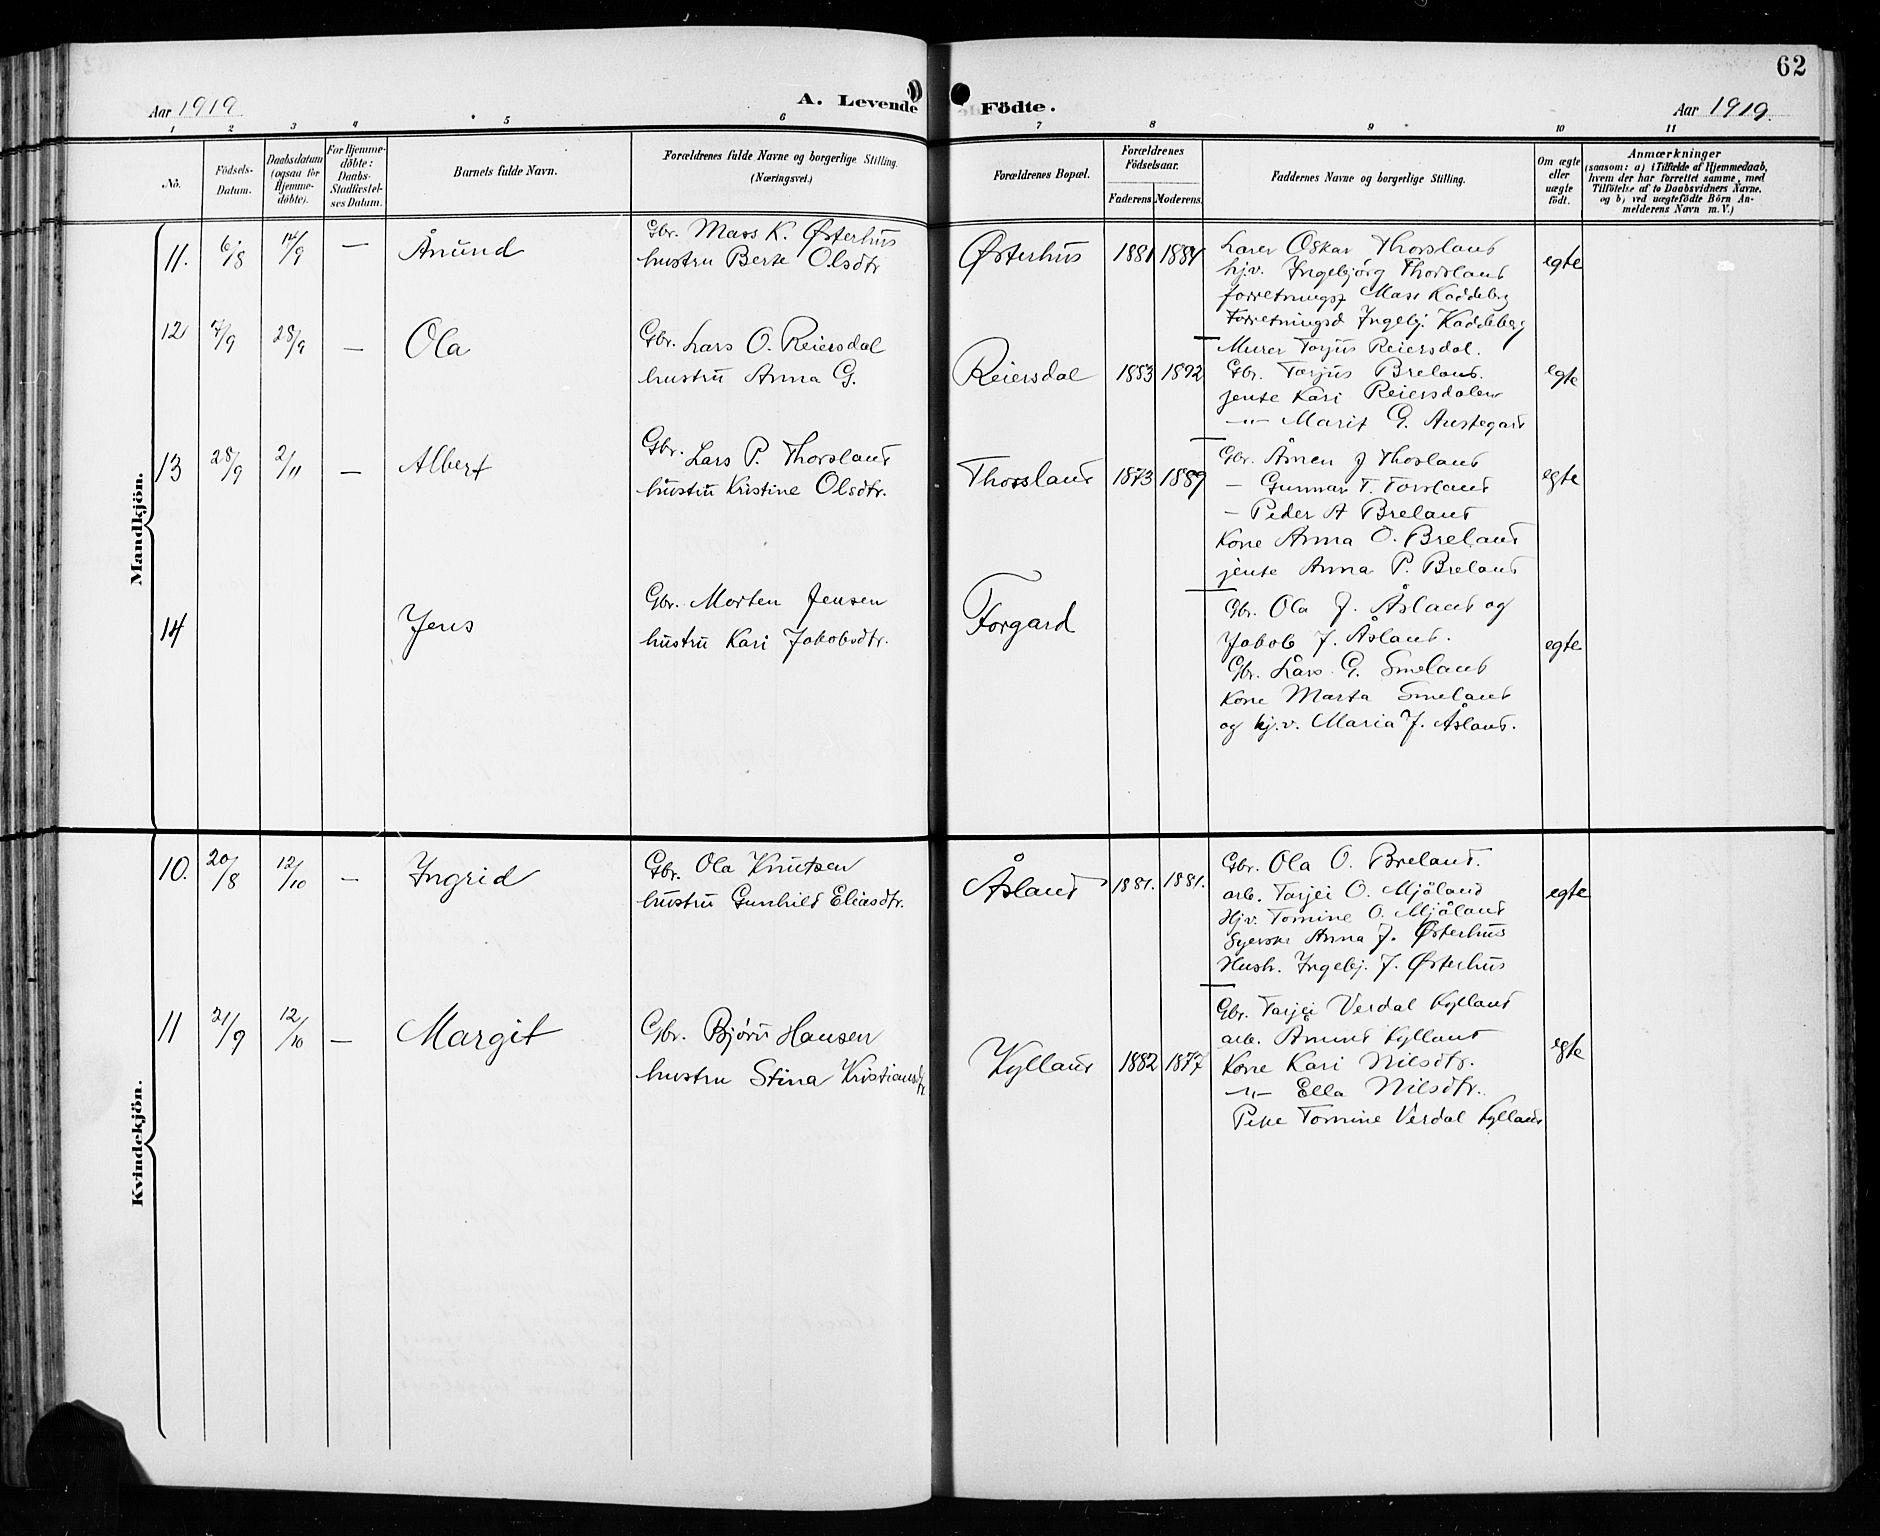 62
Aar 1919
A. Levende Födte.
Aar 1919.
1 2 3 4 5 6 7 8 9 10 11
No.
Födsels-
Datum.
Daabsdatum
(ogsaa for
Hjemme-
döbte).
For Hjemme-
döbte:
Daabs-
Stadfæstel-
ses Datum.
Barnets fulde Navn.
Forældrenes fulde Navne og borgerlige Stilling.
(Næringsvei.)
Forældrenes Bopæl.
Forældrenes
Födselsaar.
Faderens Moderens.
Faddernes Navne og borgerlige Stilling.
Om ægte
eller
uægte
født.
Anmærkninger
(saasom: a) i Tilfælde af Hjemmedaab,
hvem der har forrettet samme, med
Tilföielse af to Daabsvidners Navne,
og b) ved uægtefödte Börn An-
melderens Navn m. V.)
Mandkjön.
11. 6/8 14/9 — Ånund
Gbr. Mass K. Østerhus
hustru Berte Olsdtr
Østerhus 1881 1884
Lærer Oskar Thorsland
hjv. Ingebjörg Thorsland
forretningsf Mass Kaddeberg
Forretningsd Ingebj. Kaddeberg
Murer Torjus Reiersdal.
egte
12 7/9 28/9 — Ola
Gbr. Lars O. Reiersdal
hustru Anna G.
Reiersdal 1883 1892
Gbr. Torjus Breland.
jente Kari Reiersdalen
—"— Marit G. Austegard
egte
13 28/9 2/11 — Albert
Gbr. Lars P. Thorsland
hustru Kristine Olsdtr.
Thorsland 1873 1889
Gbr. Ånen J Thosland
— Gunnar T. Torsland
— Peder A Breland
Kone Anna O. Breland
jente Anna P. Breland
egte
14 Jens
Gbr. Morten Jensen
hustru Kari Jakobsdtr.
Forgard
Gbr. Ola J. Åsland og
Jakob J. Åsland.
Gbr. Lars G. Smeland
Kone Marta Smeland
og hj.v. Maria J. Åsland.
egte
Kvindekjön.
10. 20/8 12/10 — Ingrid
Gbr. Ola Knutsen
hustru Gunhild Eliasdtr.
Åsland 1881. 1881.
Gbr. Ola O. Breland.
arb. Tarjei O. Mjåland
Hjv. Tomine O. Mjåland
Syerske Anna J. Østerhus
Hush. Ingebj. J. Østerhus
egte
11 21/9 12/10 — Margit
Gbr. Bjørn Hansen
hustru Stina Kristiansdtr
Kylland 1882 1877
Gbr. Tarjei Verdal Kylland
arb. Ånund Kylland
Kone Kari Nilsdtr.
—"— Ella Nilsdtr.
Pike Tomine Verdal Kylland
egte